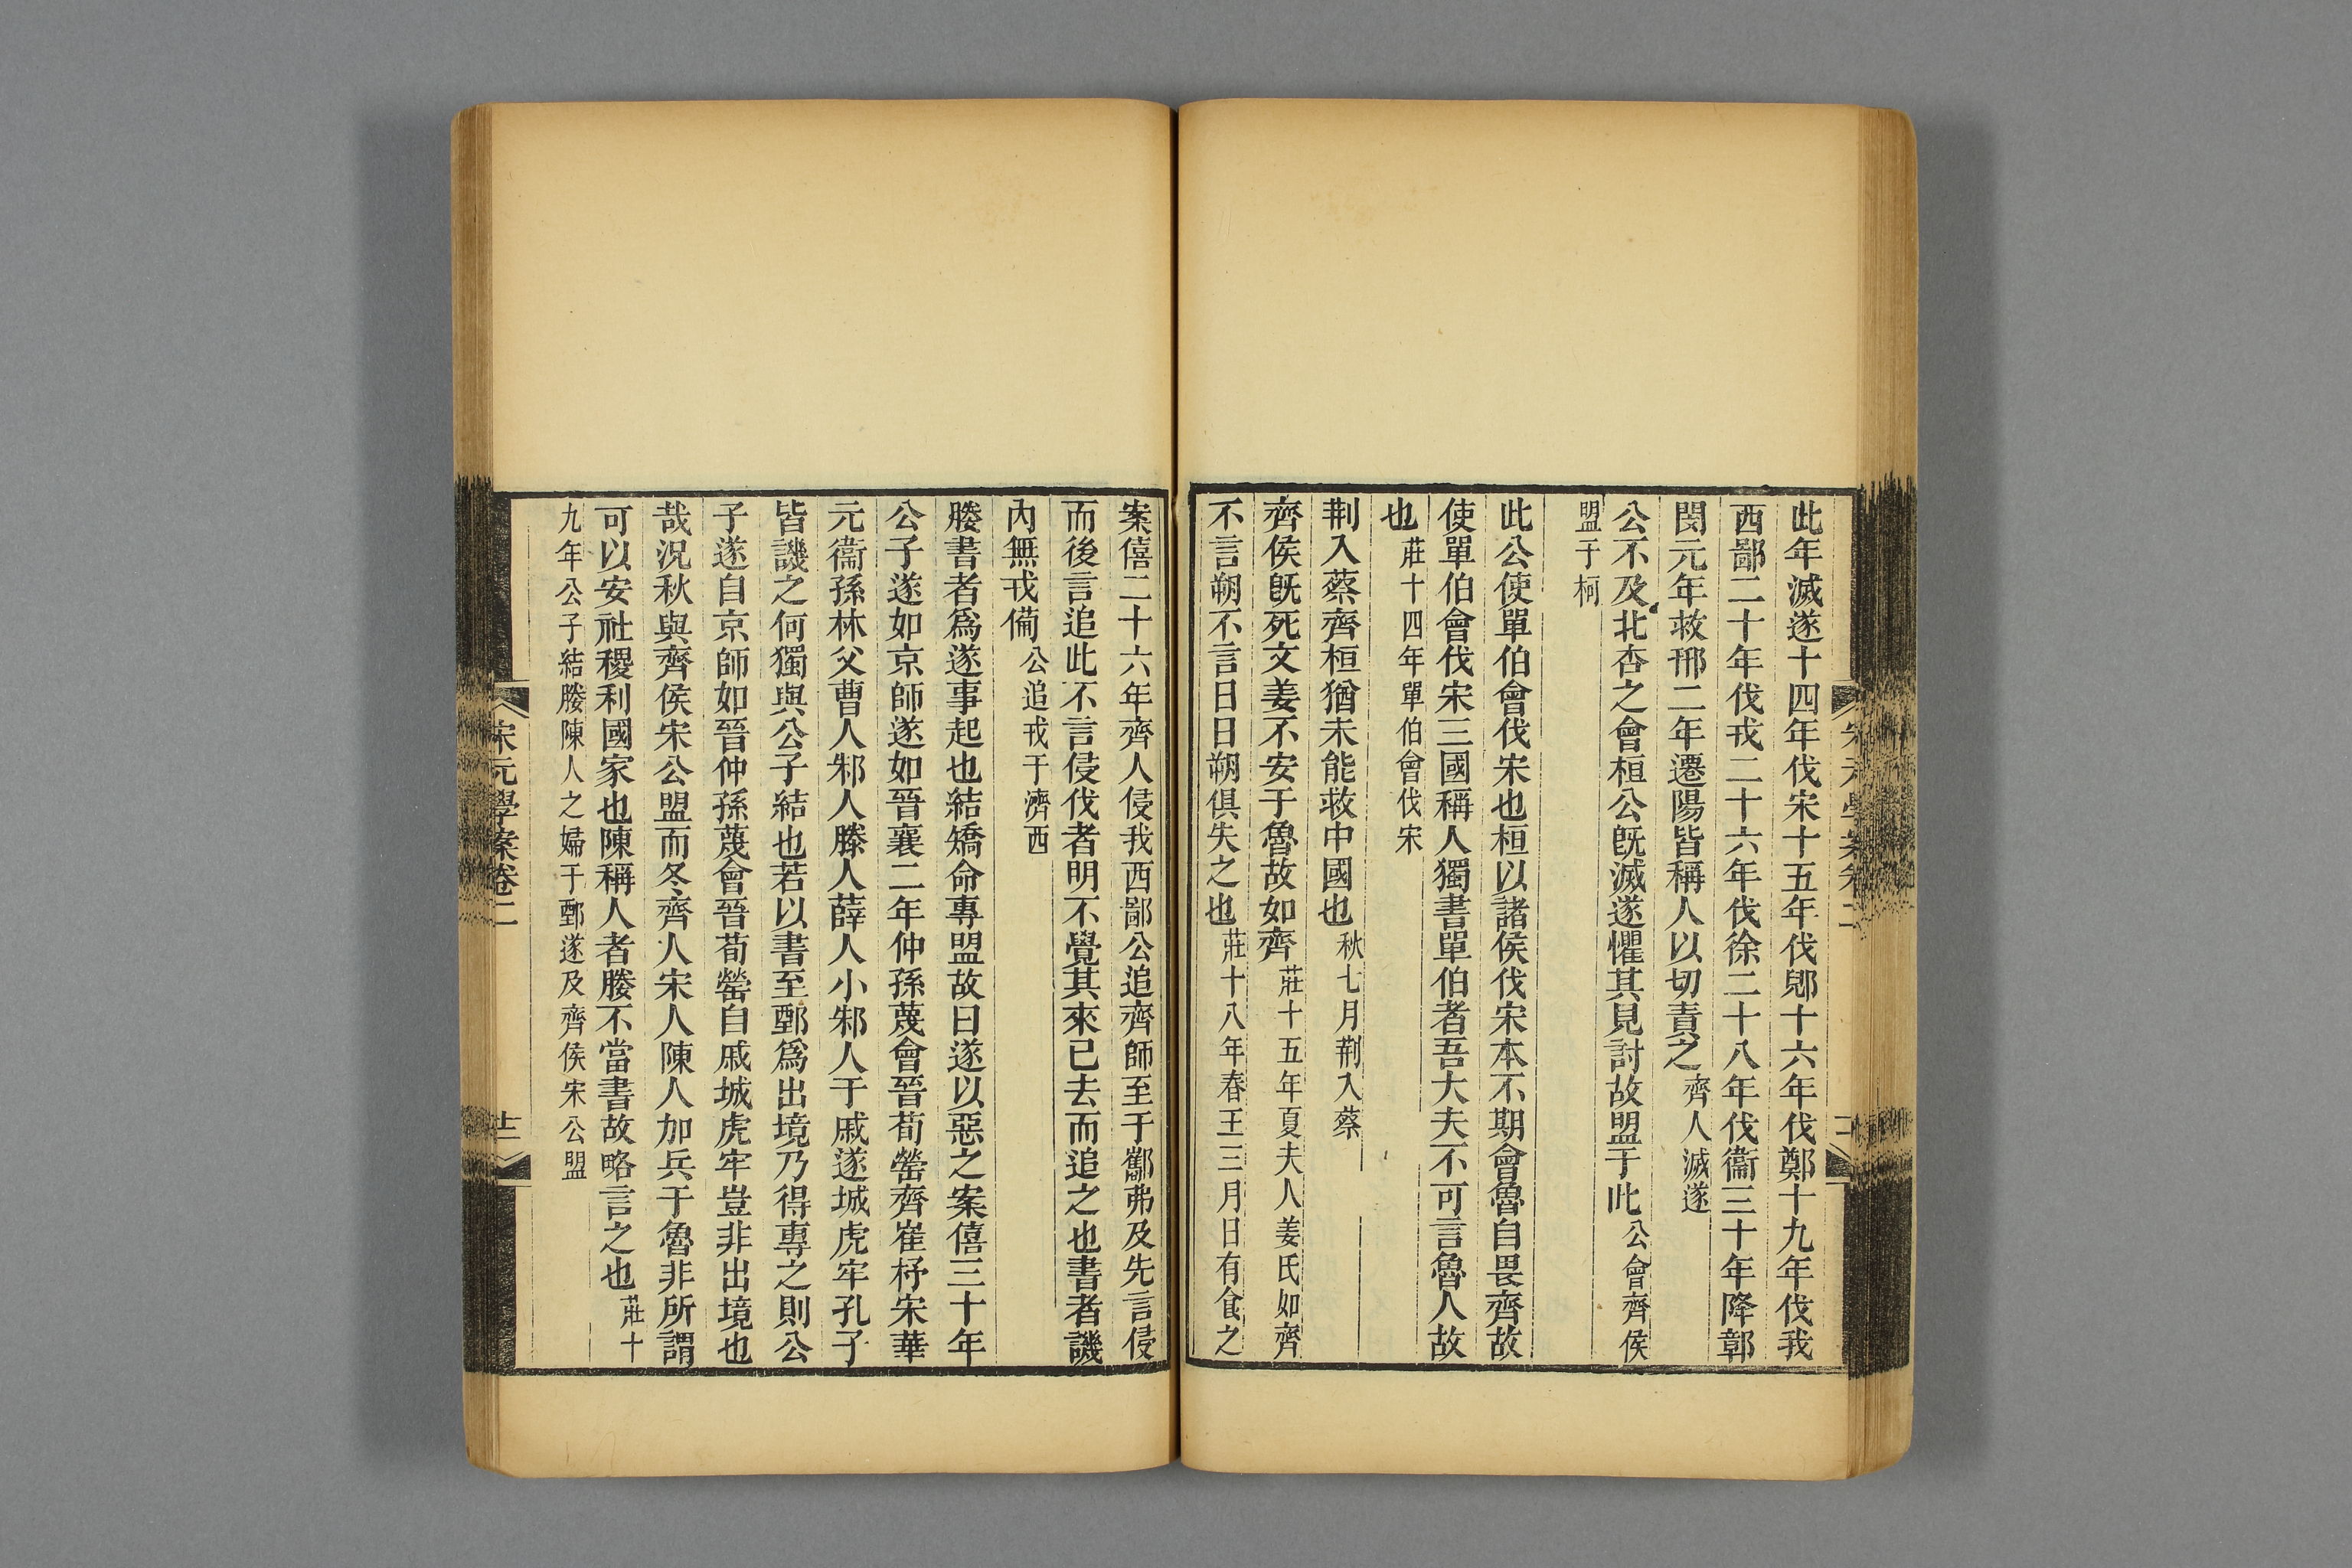 此年滅遂十四年伐宋十五年伐郳十六年伐鄭十九年伐我
西鄙二十年伐戎二十六年伐徐二十八年伐衞三十年降鄣
閔元年救邢二年遷陽皆稱人以切責之齊人滅遂
公不及北杏之會桓公旣滅遂懼其見討故盟于此公會齊侯
盟于柯
此公使單伯會伐宋也桓以諸侯伐宋本不期會魯自畏齊故
使單伯會伐宋三國稱人獨書單伯者吾大夫不可言魯人故
也莊十四年單伯會伐宋
荆入蔡齊桓猶未能救中國也秋七月荆入蔡
齊侯旣死文姜不安于魯故如齊莊十五年夏夫人姜氏如齊
不言朔不言日日朔俱失之也莊十八年春王三月日有食之
案僖二十六年齊人侵我西鄙公追齊師至于酅弗及先言侵
而後言追此不言侵伐者明不覺其來已去而追之也書者譏
內無戎備公追戎于濟西
媵書者爲遂事起也結矯命專盟故曰遂以惡之案僖三十年
公子遂如京師遂如晉襄二年仲孫蔑會晉荀罃齊崔杼宋華
元衞孫林父曹人邾人滕人薛人小邾人于戚遂城虎牢孔子
皆譏之何獨與公子結也若以書至鄄爲出境乃得專之則公
子遂自京師如晉仲孫蔑會晉荀罃自戚城虎牢豈非出境也
哉況秋與齊侯宋公盟而冬齊人宋人陳人加兵于魯非所謂
可以安社稷利國家也陳稱人者媵不當書故略言之也莊十
九年公子結媵陳人之婦于鄄遂及齊侯宋公盟
宋元學案卷二
十二